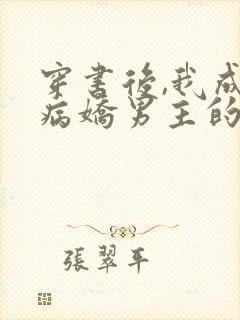 穿書後,我成
病嬌男主的
張翠平